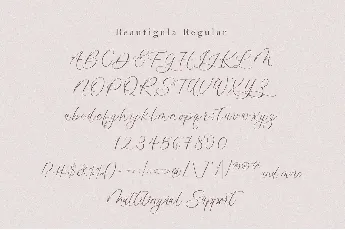 Beautignla Regular
ABCDEFGHIJKLM
NOPQRSTUVWXYZ
abcdefghijklmnopqrstuvwxyz
1234567890
and more
Multilingual Support